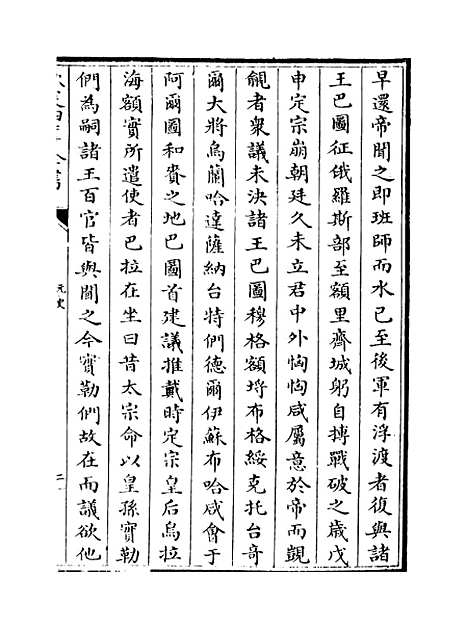 早還帝聞之即班師而水已至後軍有浮渡者復與諸
王巴圖征俄羅斯部至額里齊城躬自搏戰破之歲戊
申定宗崩朝廷久未立君中外恟恟咸屬意於帝而覬
覦者衆議未決諸王巴圖穆格額埒布格綏克托台奇
爾大將烏蘭哈達薩納台特們德爾伊蘇布哈咸會于
阿爾圖和賚之地巴圖首建議推戴時定宗皇后烏拉
海額實所遣使者巴拉在坐曰昔太宗命以皇孫實勒
們為嗣諸王百官皆與聞之今實勒們故在而議欲他
元史